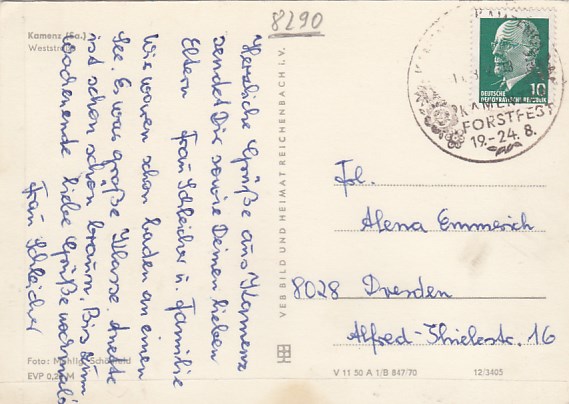 8290
Kamenz (Sa.)
Weststraße
Herzliche Grüße aus Kamenz
sendet Dir sowie Deinen lieben
Eltern Frau Schleicher u. Familie
Wir waren schon baden an einem
See. Es war große Klasse. Anette
ist schon schön braun. Bis zum
Wochenende liebe Grüße nochmals
Frau Schleicher
Foto: Mehlig, Schönfeld
EVP 0,20 M
VEB BILD UND HEIMAT REICHENBACH i. V.
DEUTSCHE
DEMOKRATISCHE REPUBLIK
10
KAMENZ
FORSTFEST
19.-24. 8.
Frl.
Alena Emmerich
8028 Dresden
Alfred-Thielestr. 16
V 11 50 A 1/B 847/70
12/3405